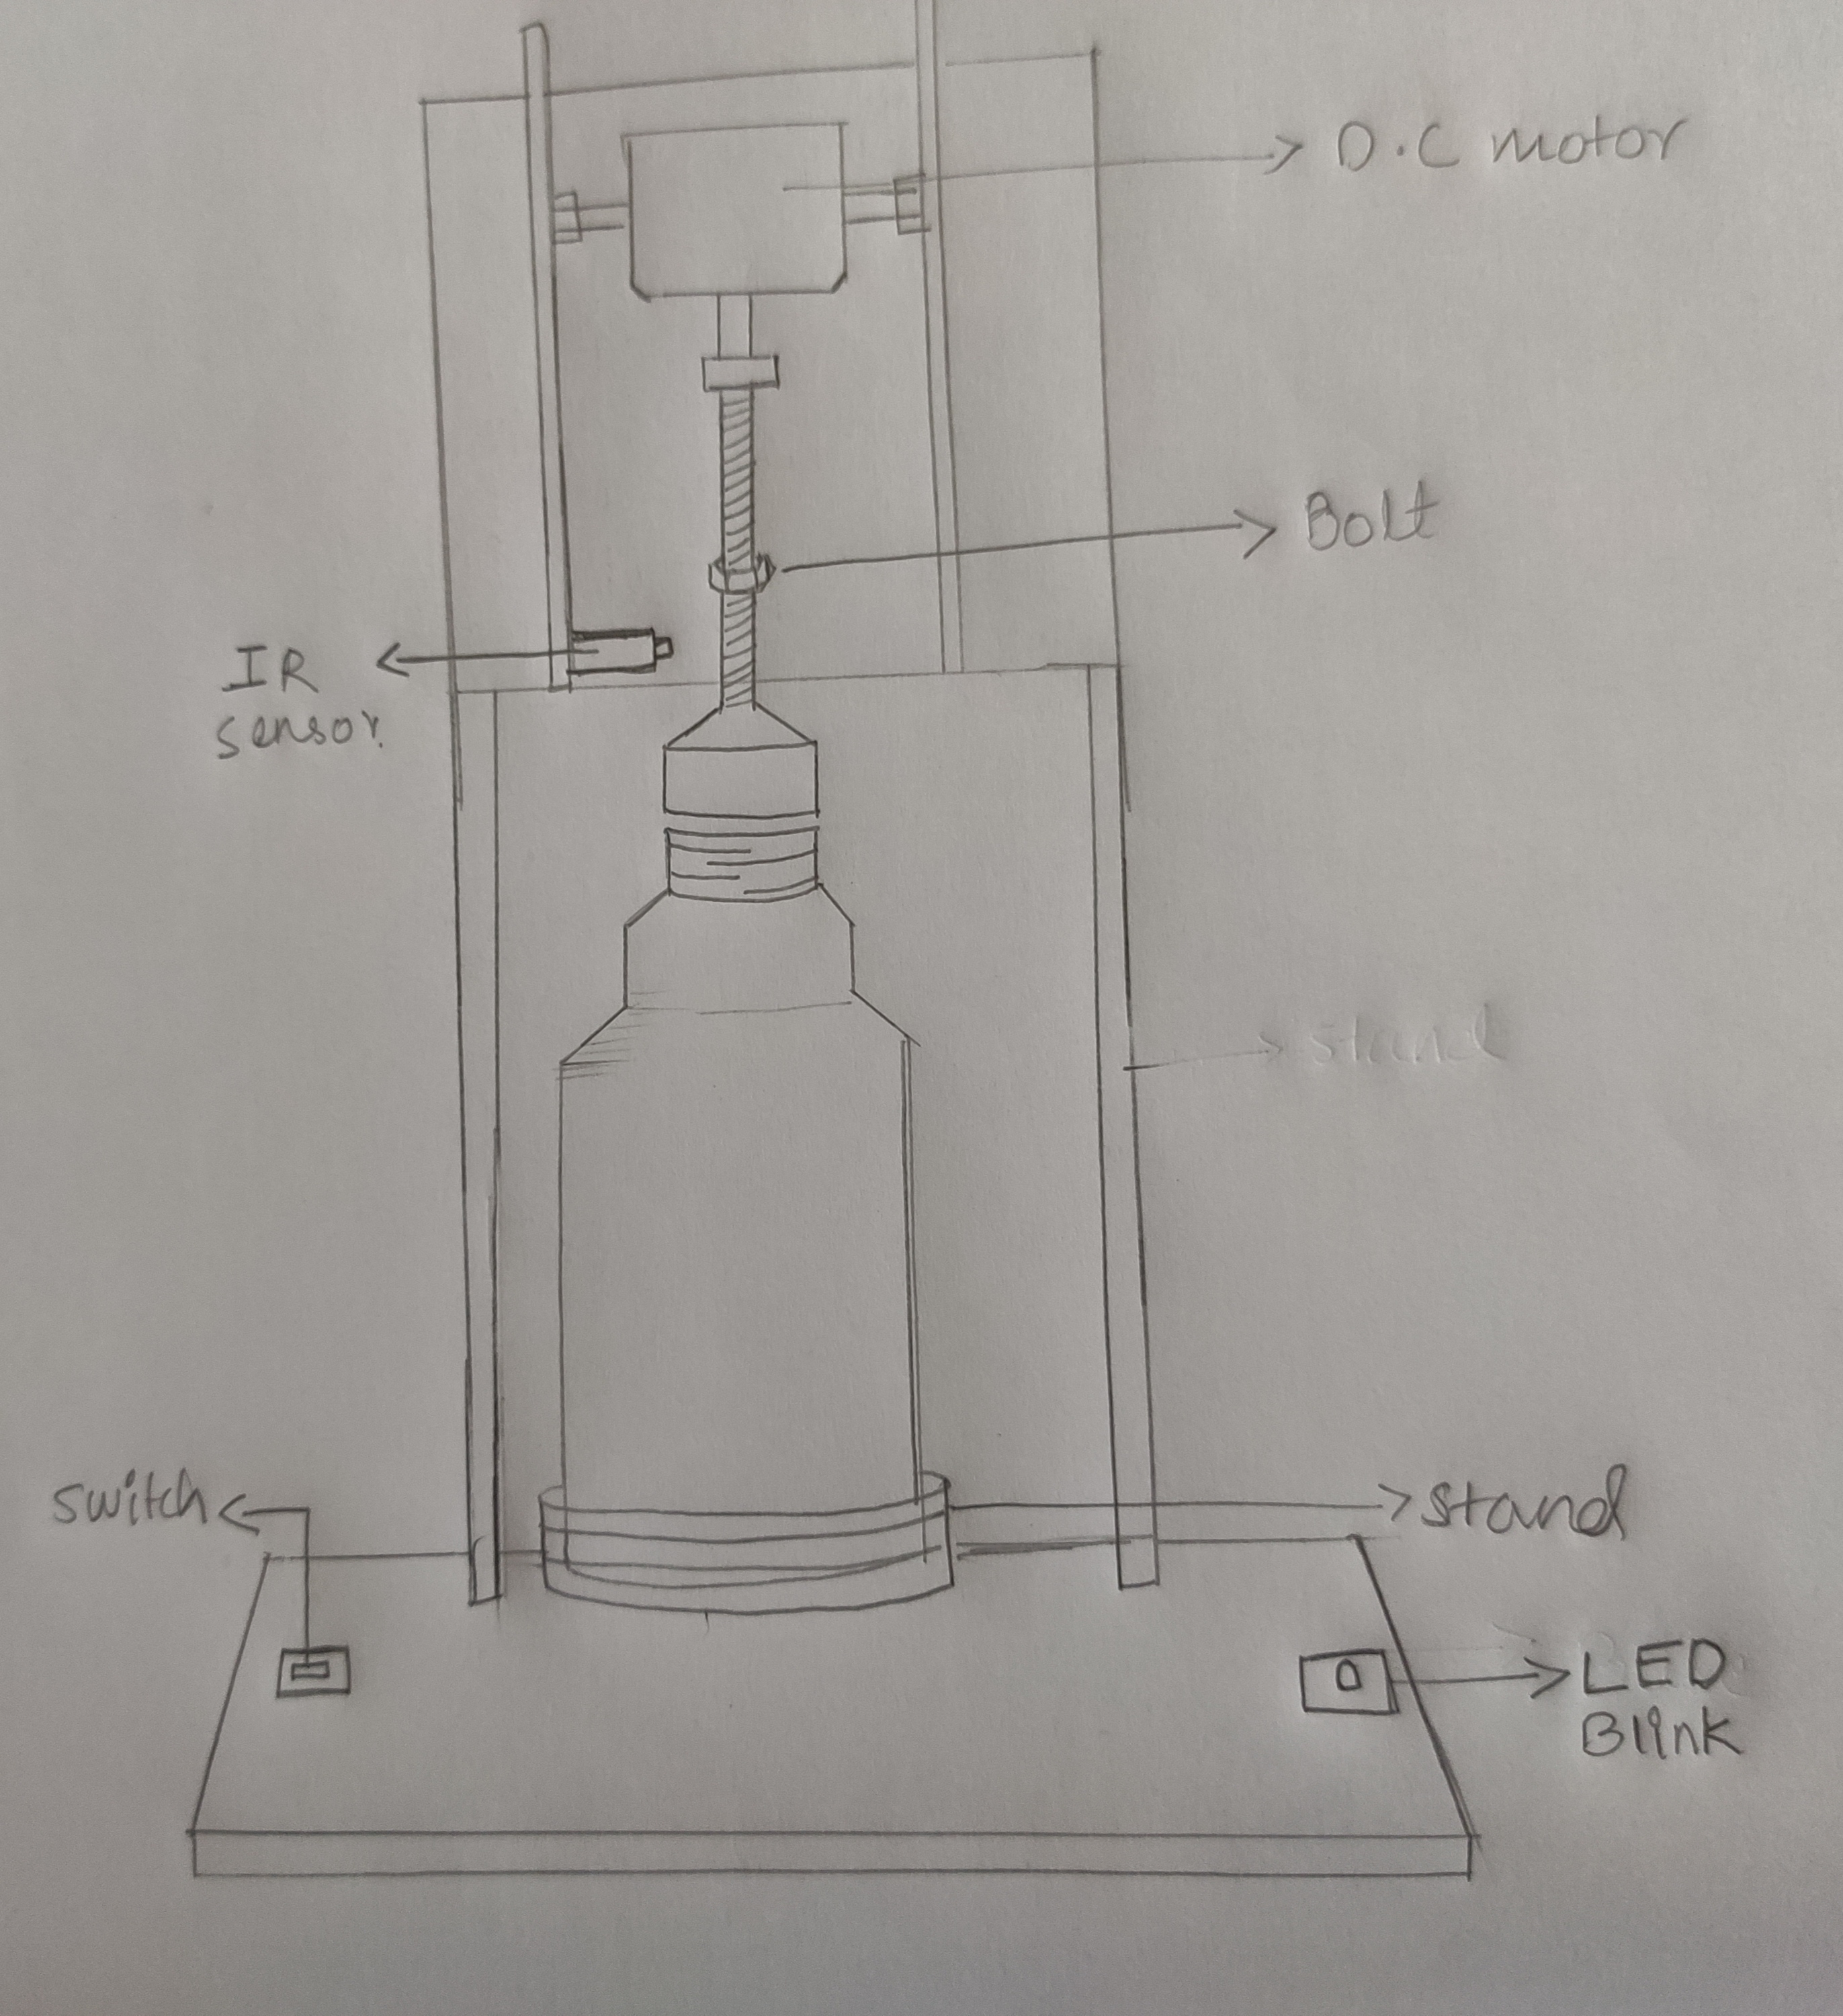 D.C motor
Bolt
IR
sensor.
stand
switch
stand
LED
Blink